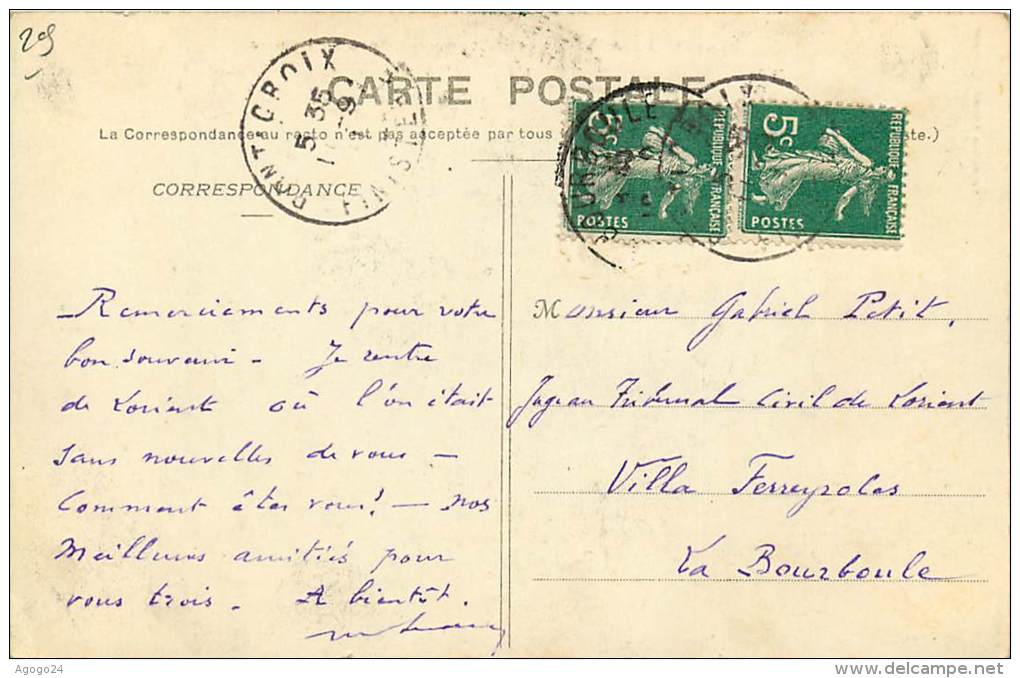 29
CARTE POSTALE
La Correspondance au recto n'est pas acceptée par tous
ste.)
CORRESPONDANCE
PONT-CROIX
5 35
FINISTERE
5c
REPUBLIQUE FRANÇAISE
POSTES
5c
REPUBLIQUE FRANÇAISE
POSTES
– Remerciements pour votre
bon souvenir – Je rentre
de Lorient où l'on était
sans nouvelles de vous –
Comment êtes vous! – nos
Meilleures amitiés pour
vous trois. A bientôt.
Monsieur Gabriel Petit,
Juge au Tribunal Civil de Lorient
Villa Ferreyrolles
La Bourboule
Agogo24
delcampe.net